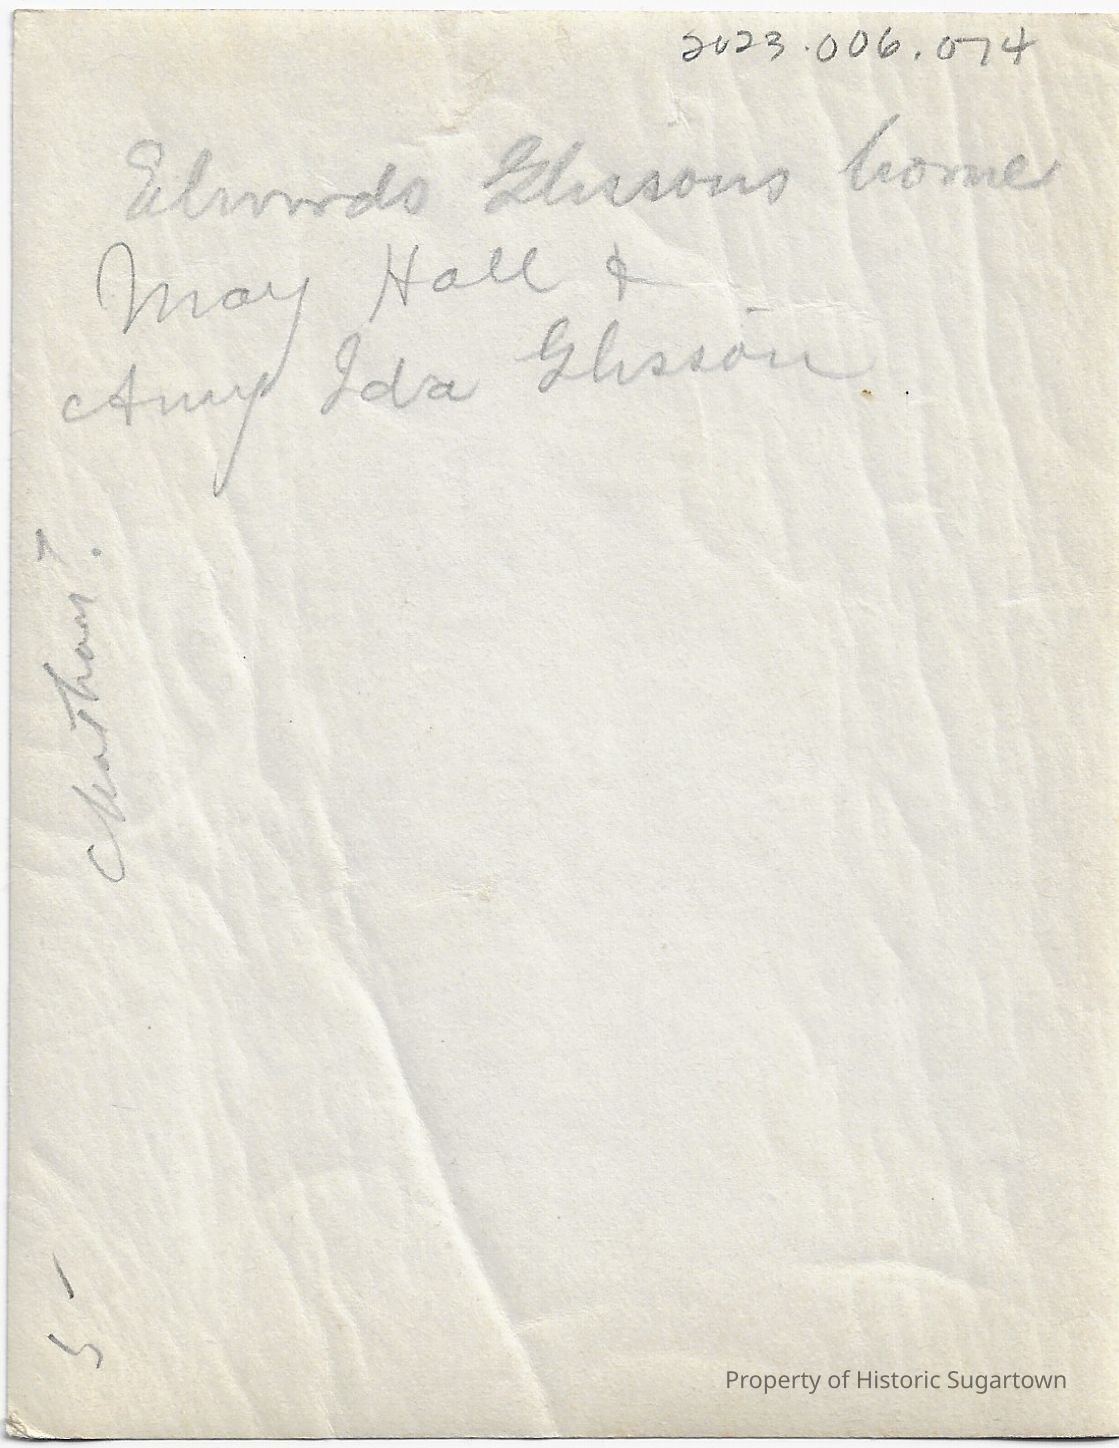 2023.006.074
Edwards Glissons home
May Hall &
Amy Ida Glisson
Chatham?
5-
Property of Historic Sugartown